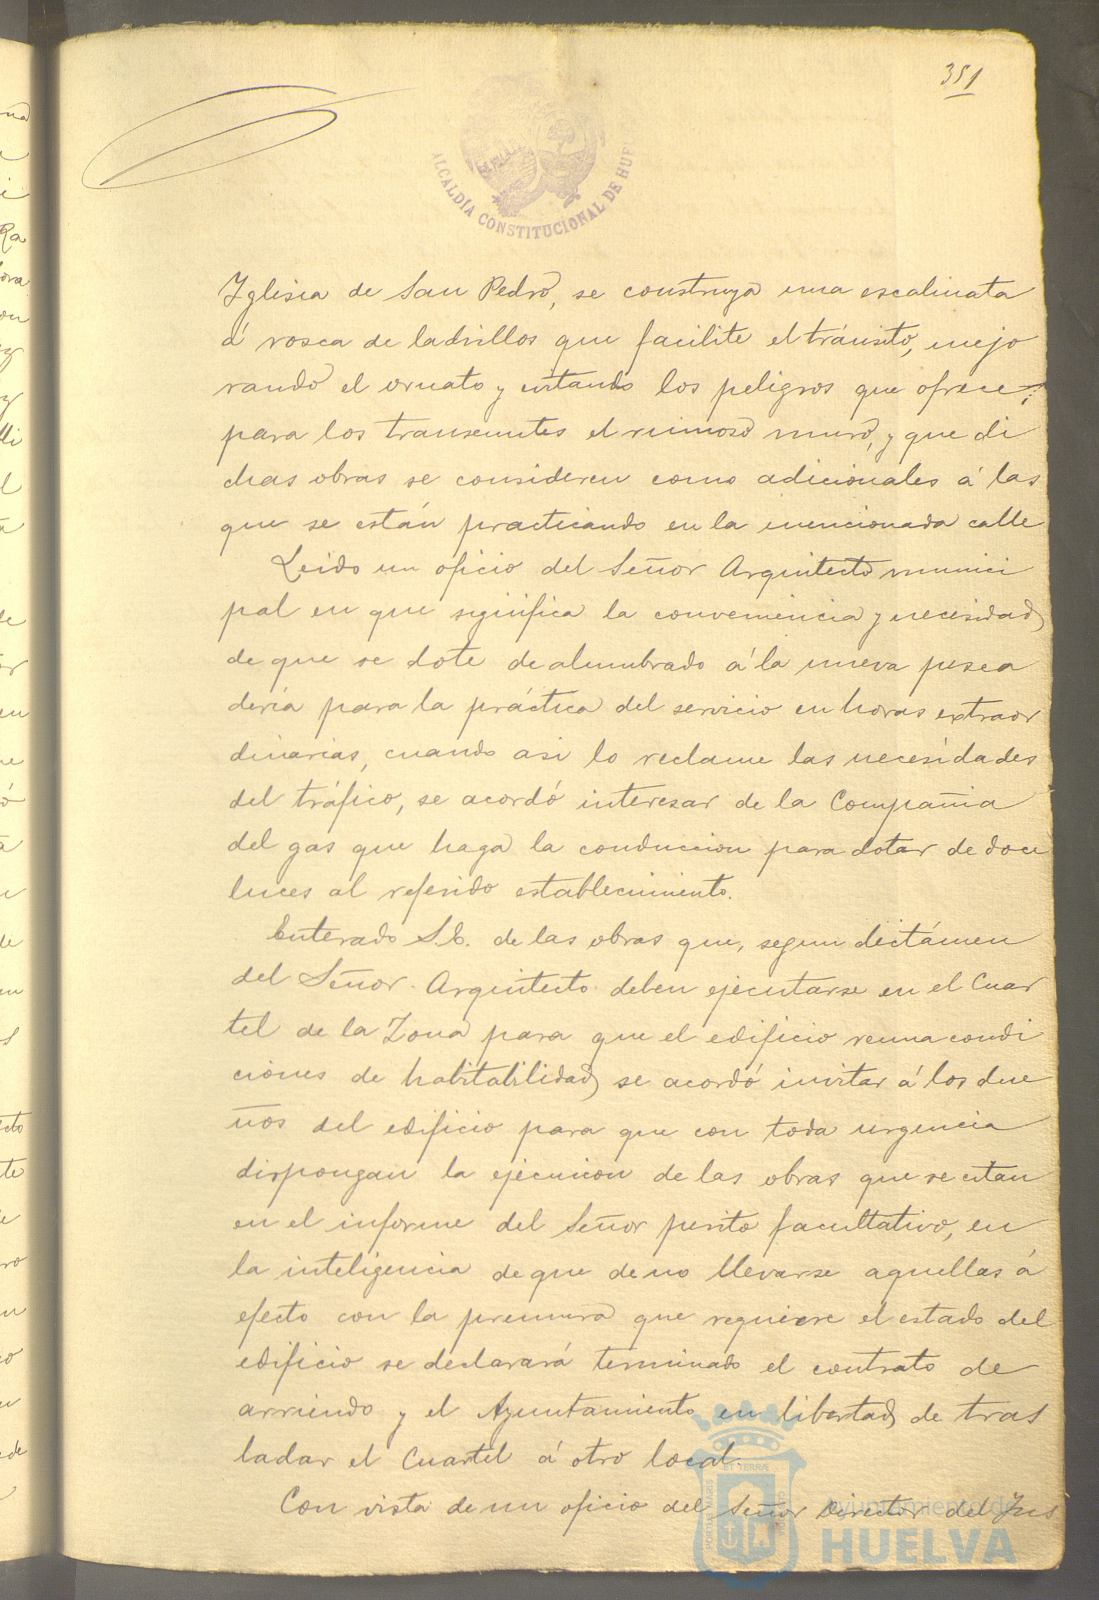 351
ALCALDÍA CONSTITUCIONAL DE HUE
Yglesia de San Pedro, se construya una escalinata
á rosca de ladrillos que facilite el tránsito, mejo
rando el ornato y evitando los peligros que ofrece,
para los transeuntes el ruinoso muro, y que di
chas obras se consideren como adicionales á las
que se están practicando en la mencionada calle
Leido un oficio del Señor Arquitecto munici
pal en que significa la conveniencia y necesidad
de que se dote de alumbrado á la nueva pesca
deria para la práctica del servicio en horas extraor
dinarias, cuando asi lo reclame las necesidades
del tráfico, se acordó interesar de la Compañia
del gas que haga la conduccion para dotar de doce
luces al referido establecimiento.
Enterado S.E. de las obras que, segun dictámen
del Señor Arquitecto deben ejecutarse en el Cuar
tel de la Zona para que el edificio reuna condi
ciones de habitabilidad se acordó invitar á los due
ños del edificio para que con toda urgencia
dispongan la ejecucion de las obras que se citan
en el informe del Señor perito facultativo, en
la inteligencia de que de no llevarse aquellas á
efecto con la premura que requiere el estado del
edificio se declarará terminado el contrato de
arriendo y el Ayuntamiento en libertad de tras
ladar el Cuartel á otro local.
Con vista de un oficio del Señor Director del Ins
Ayuntamiento de
HUELVA